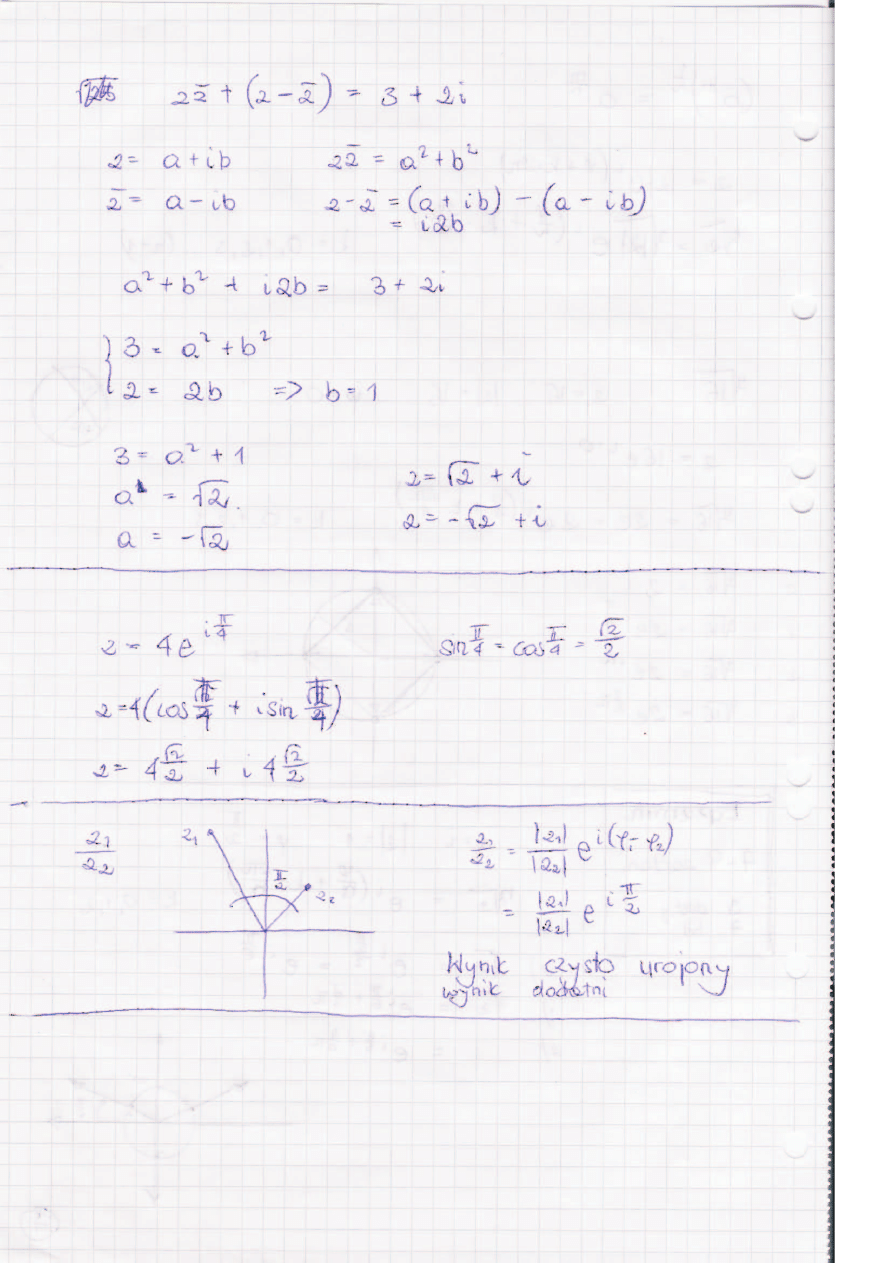 z z̄ + (z - z̄) = 3 + 2i
z = a + ib    z z̄ = a² + b²
z̄ = a - ib    z - z̄ = (a + ib) - (a - ib)
= i2b
a² + b² + i2b = 3 + 2i
{ 3 = a² + b²
2 = 2b => b = 1
3 = a² + 1
a = √2.    z = √2 + i
a = -√2    z = -√2 + i
z = 4e^{iπ/4}    sin π/4 = cos π/4 = √2/2
z = 4(cos π/4 + i sin π/4)
z = 4 √2/2 + i 4 √2/2
z₁/z₂    z₁    π/2    z₂    z₁/z₂ = |z₁|/|z₂| e^{i(φ₁ - φ₂)}
= |z₁|/|z₂| e^{iπ/2}
Wynik czysto urojony
wynik dodatni